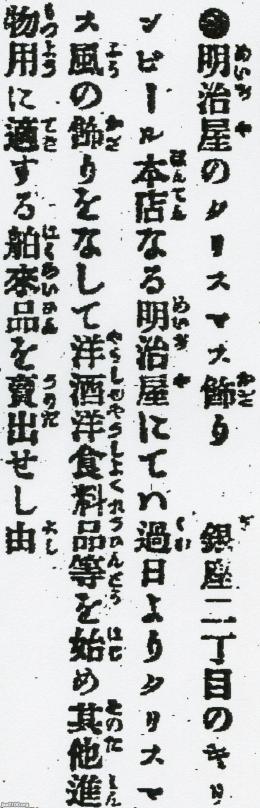 ◉明治屋のクリスマス飾り　銀座二丁目のキリ
ンビール本店なる明治屋にてハ過日よりクリスマ
ス風の飾りをなして洋酒洋食料品等を始め其他進
物用に適する舶來品を賣出せし由
jaa2100.org